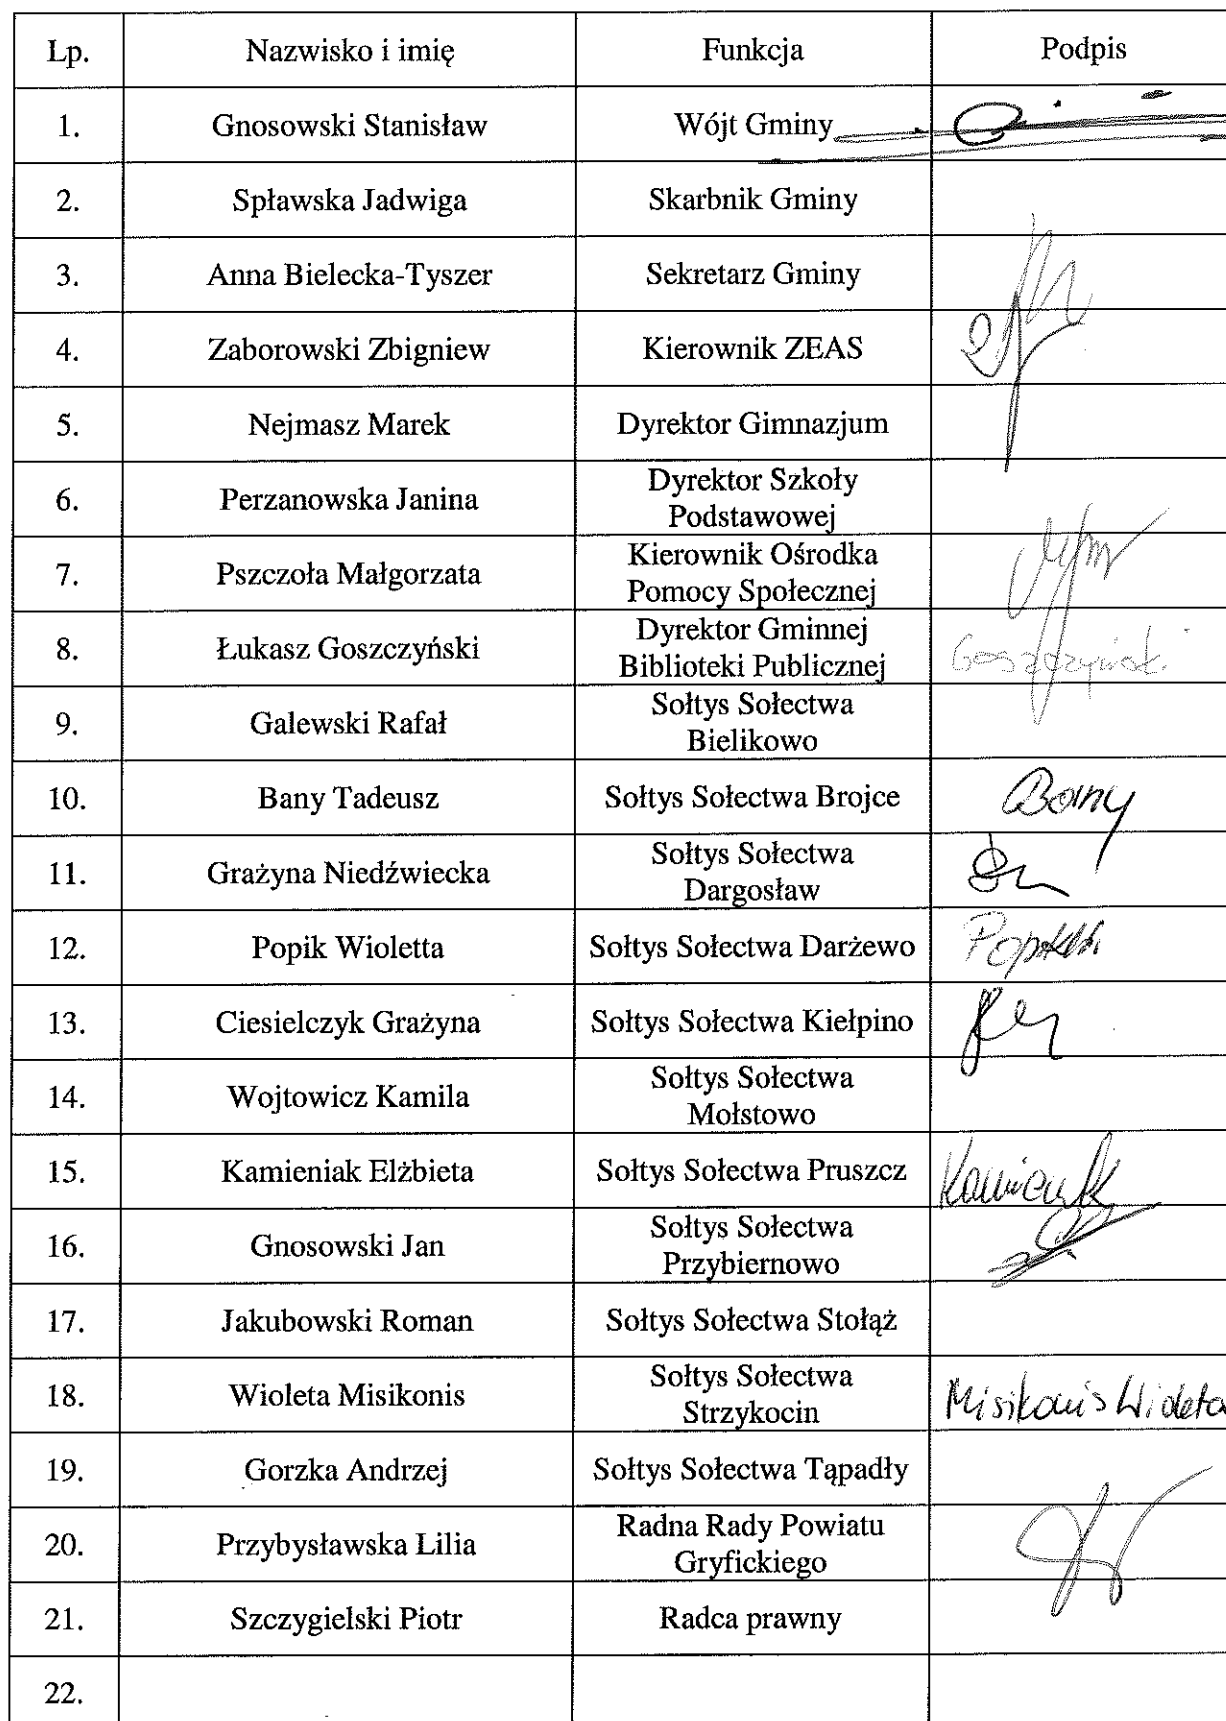 Lp. Nazwisko i imię Funkcja Podpis
1. Gnosowski Stanisław Wójt Gminy
2. Spławska Jadwiga Skarbnik Gminy
3. Anna Bielecka-Tyszer Sekretarz Gminy
4. Zaborowski Zbigniew Kierownik ZEAS
5. Nejmasz Marek Dyrektor Gimnazjum
6. Perzanowska Janina Dyrektor Szkoły
Podstawowej
7. Pszczoła Małgorzata Kierownik Ośrodka
Pomocy Społecznej
8. Łukasz Goszczyński Dyrektor Gminnej
Biblioteki Publicznej Goszczyński
9. Galewski Rafał Sołtys Sołectwa
Bielikowo
10. Bany Tadeusz Sołtys Sołectwa Brojce Bany
11. Grażyna Niedźwiecka Sołtys Sołectwa
Dargosław
12. Popik Wioletta Sołtys Sołectwa Darżewo
13. Ciesielczyk Grażyna Sołtys Sołectwa Kiełpino
14. Wojtowicz Kamila Sołtys Sołectwa
Mołstowo
15. Kamieniak Elżbieta Sołtys Sołectwa Pruszcz
16. Gnosowski Jan Sołtys Sołectwa
Przybiernowo
17. Jakubowski Roman Sołtys Sołectwa Stołąż
18. Wioleta Misikonis Sołtys Sołectwa
Strzykocin Misikonis Wioleta
19. Gorzka Andrzej Sołtys Sołectwa Tąpadły
20. Przybysławska Lilia Radna Rady Powiatu
Gryfickiego
21. Szczygielski Piotr Radca prawny
22.